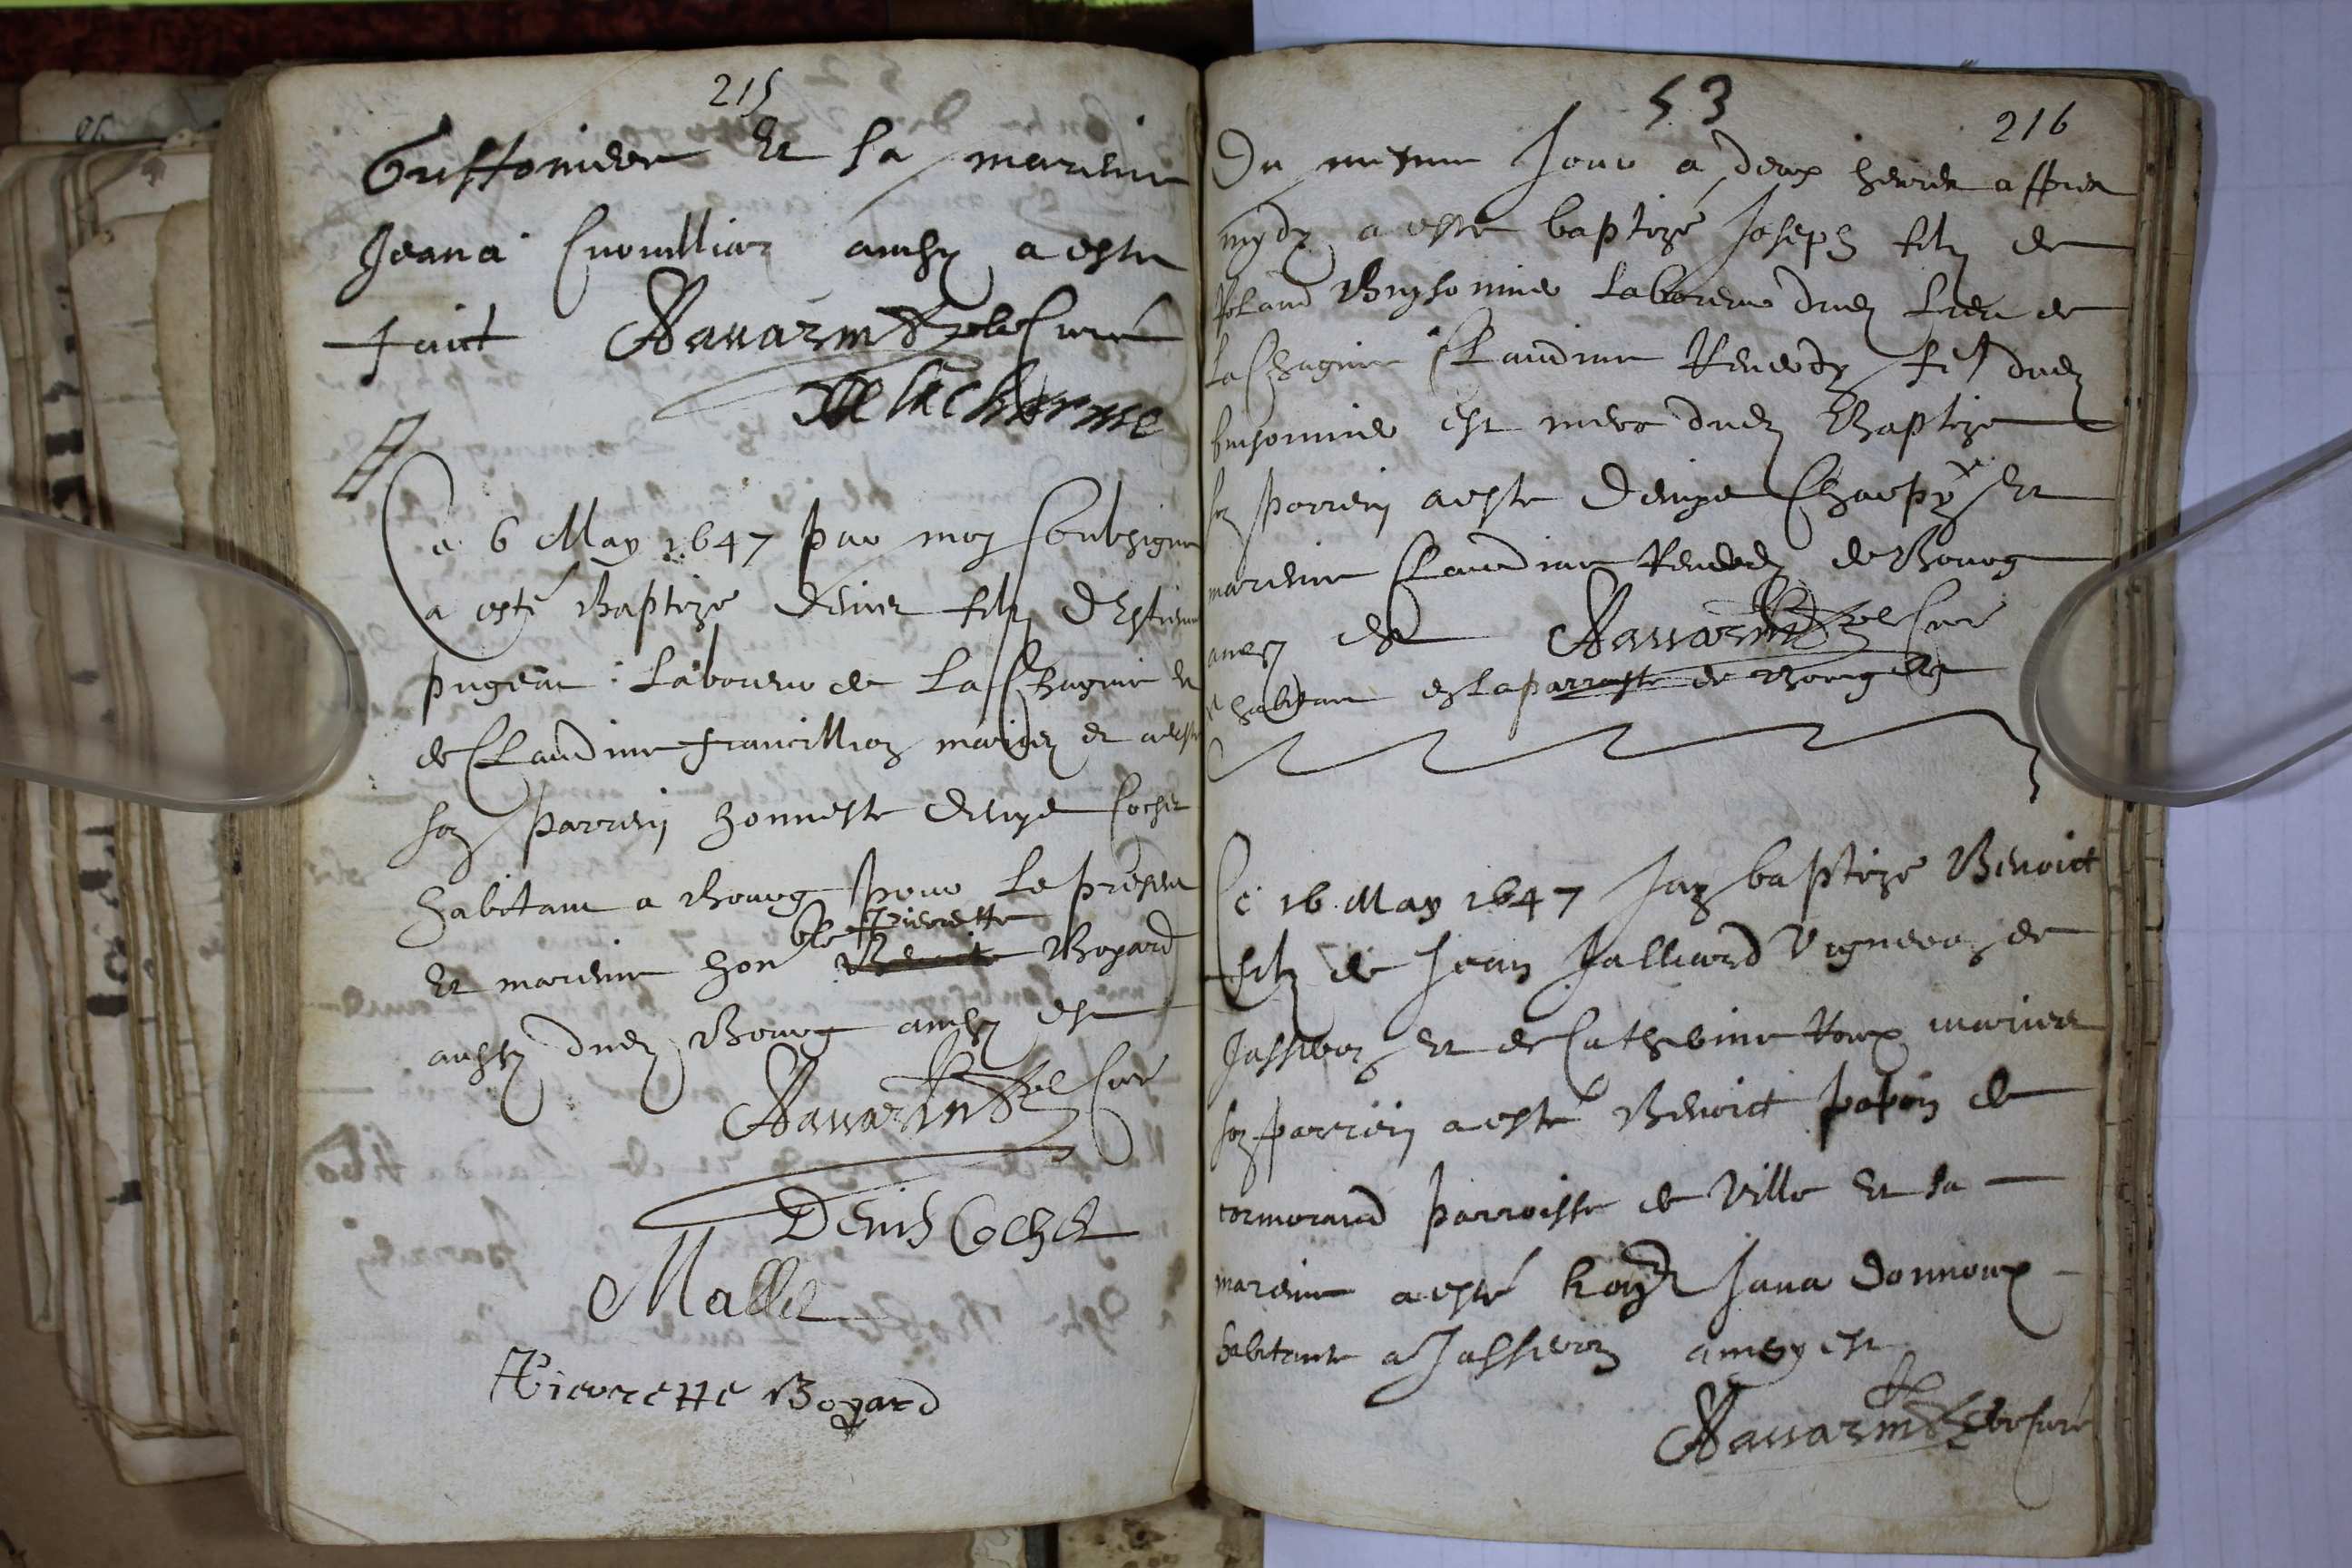 215
Et sa mareine
Jeana ainsy a esté
faict Navarin Curé
Delacharme
Ce 6 May 1647 par moy soubsigne
a esté Baptize Denis filz d'Estienne
pugeat Laboureur de La Chagnie et
de Claudine francillion mariez et a esté
son parrein honneste Denys Cochet
habitant a Bourg pour le present
Pierrette
Et mareine honble Benoite Bogard
aussy dud Bourg ainsy est
Navarin Curé
Denis Cochet
Mallet
Pierrette Bogard
53
216
Du mesme Jour a deux heures appres
mydy a esté baptizé Joseph filz de
Roland Buysonnier Laboureur dud Lieu de
La Chagnie Claudine Reverdy fe dud
buisonnier est mere dud Baptize
son parrein a esté Denys Charpy Et
mareine Claudine Reverdy de Bourg
ainsy est Navarin Curé
habitant de la parroisse de Bourg
Ce 16 May 1647 Jay baptize Benoict
filz de Jean Jalliard Vigneron de
Jasseron Et de Catherine Roux mariez
son parrein a esté Benoict papon de
cormorand parroisse de Ville Et sa
mareine a esté Jana Donnoux
habitante a Jasseron ainsy est
Navarin Curé